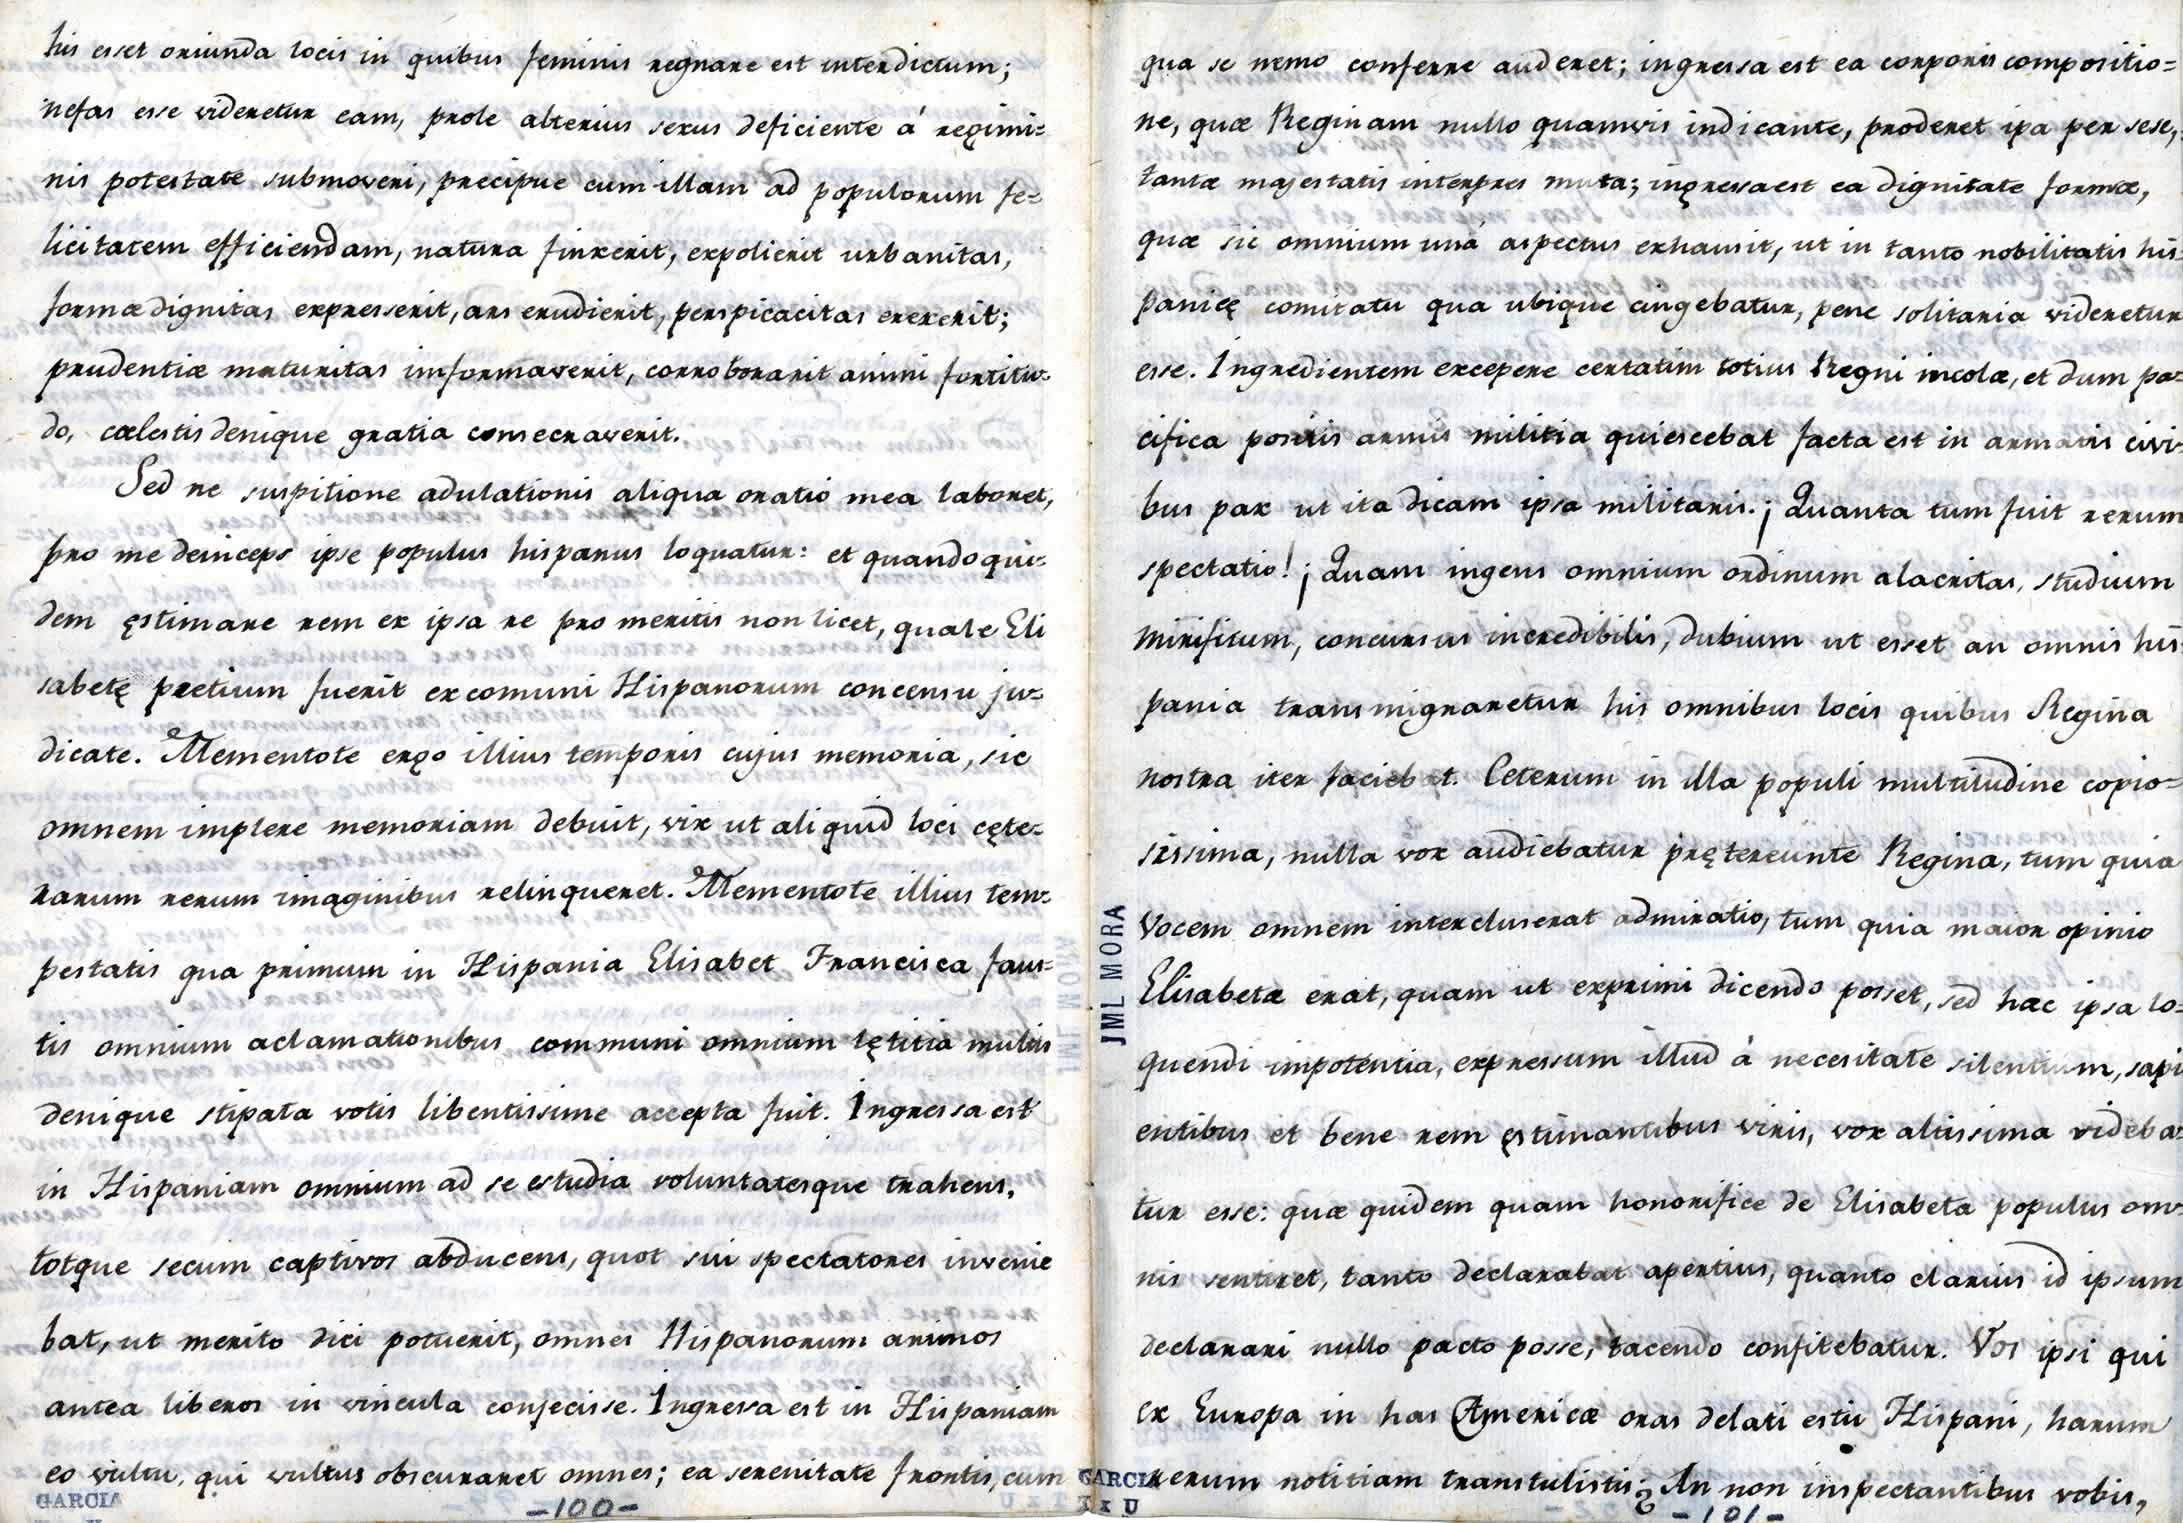 his esset oriunda locis in quibus feminis regnare est interdictum;
nefas esse videretur eam, prole alterius sexus deficiente á regimi=
nis potestate submoveri, precipue cum illam ad populorum fe=
licitatem efficiendam, natura finxerit, expolierit urbanitas,
formæ dignitas expresserit, ars erudierit, perspicacitas erexerit;
prudentiæ maturitas imformaverit, corroborarit animi fortitu=
do, cælestis denique gratia comsecraverit.
Sed ne suspitione adulationis aliqua oratio mea laboret,
pro me deinceps ipse populus hispanus loquatur: et quandoqui=
dem ęstimare rem ex ipsa re pro meritis non licet, quale Eli
sabetę pretium fuerit ex comuni Hispanorum concensu ju=
dicate. Mementote ergo illius temporis cujus memoria, sic
omnem implere memoriam debuit, vix ut aliquid loci cęte=
rarum rerum imaginibus relinqueret. Mementote illius tem=
pestatis qua primum in Hispania Elisabet Francisca faus=
tis omnium aclamationibus communi omnium lętitia multis
denique stipata votis libentissime accepta fuit. Ingressa est
in Hispaniam omnium ad se estudia voluntatesque trahens,
totque secum captivos abducens, quot sui spectatores invenie
bat, ut merito dici potuerit, omnes Hispanorum animos
antea liberos in vincula conjecisse. Ingressa est in Hispaniam
eo vultu, qui vultus obscuraret omnes; ea serenitate frontis, cum
GARCIA
-100-
qua se nemo conferre auderet; ingressa est ea corporis compositio=
ne, quæ Reginam nullo quamvis indicante, proderet ipa per sese,
tantæ majestatis interpres muta; ingressa est ea dignitate formæ,
quæ sic omnium uná aspectus exhausit, ut in tanto nobilitatis his=
panicę comitatu qua ubique cingebatur, pene solitaria videretur
esse. Ingredientem excepere certatim totius Regni incolæ, et dum pa=
cifica positis armis militia quiescebat facta est in armatis civi=
bus pax ut ita dicam ipsa militaris. ¡Quanta tum fuit rerum
spectatio! ¡Quam ingens omnium ordinum alacritas, studium
mirificum, concursus incredibilis, dubium ut esset an omnis his=
pania transmigraretur his omnibus locis quibus Regina
nostra iter faciebat. Ceterum in illa populi multitudine copio=
sissima, nulla vox audiebatur prętereunte Regina, tum quia
vocem omnem intercluserat admiratio, tum quia maior opinio
Elisabetæ erat, quam ut exprimi dicendo posset, sed hæc ipsa lo=
quendi impotentia, expressum illud á necesitate silentium, sapi
entibus et bene rem ęstimantibus viris, vox altissima videba=
tur esse: quæ quidem quam honorifice de Elisabeta populus om=
nis sentiret, tanto declarabat apertius, quanto clarius id ipsum
declarari nullo pacto posse, tacendo confitebatur. Vos ipsi qui
ex Europa in has Americæ oras delati estis Hispani, harum
rerum notitiam transtulistis ¿An non inspectantibus vobis,
-101-
JML MORA
GARCIA